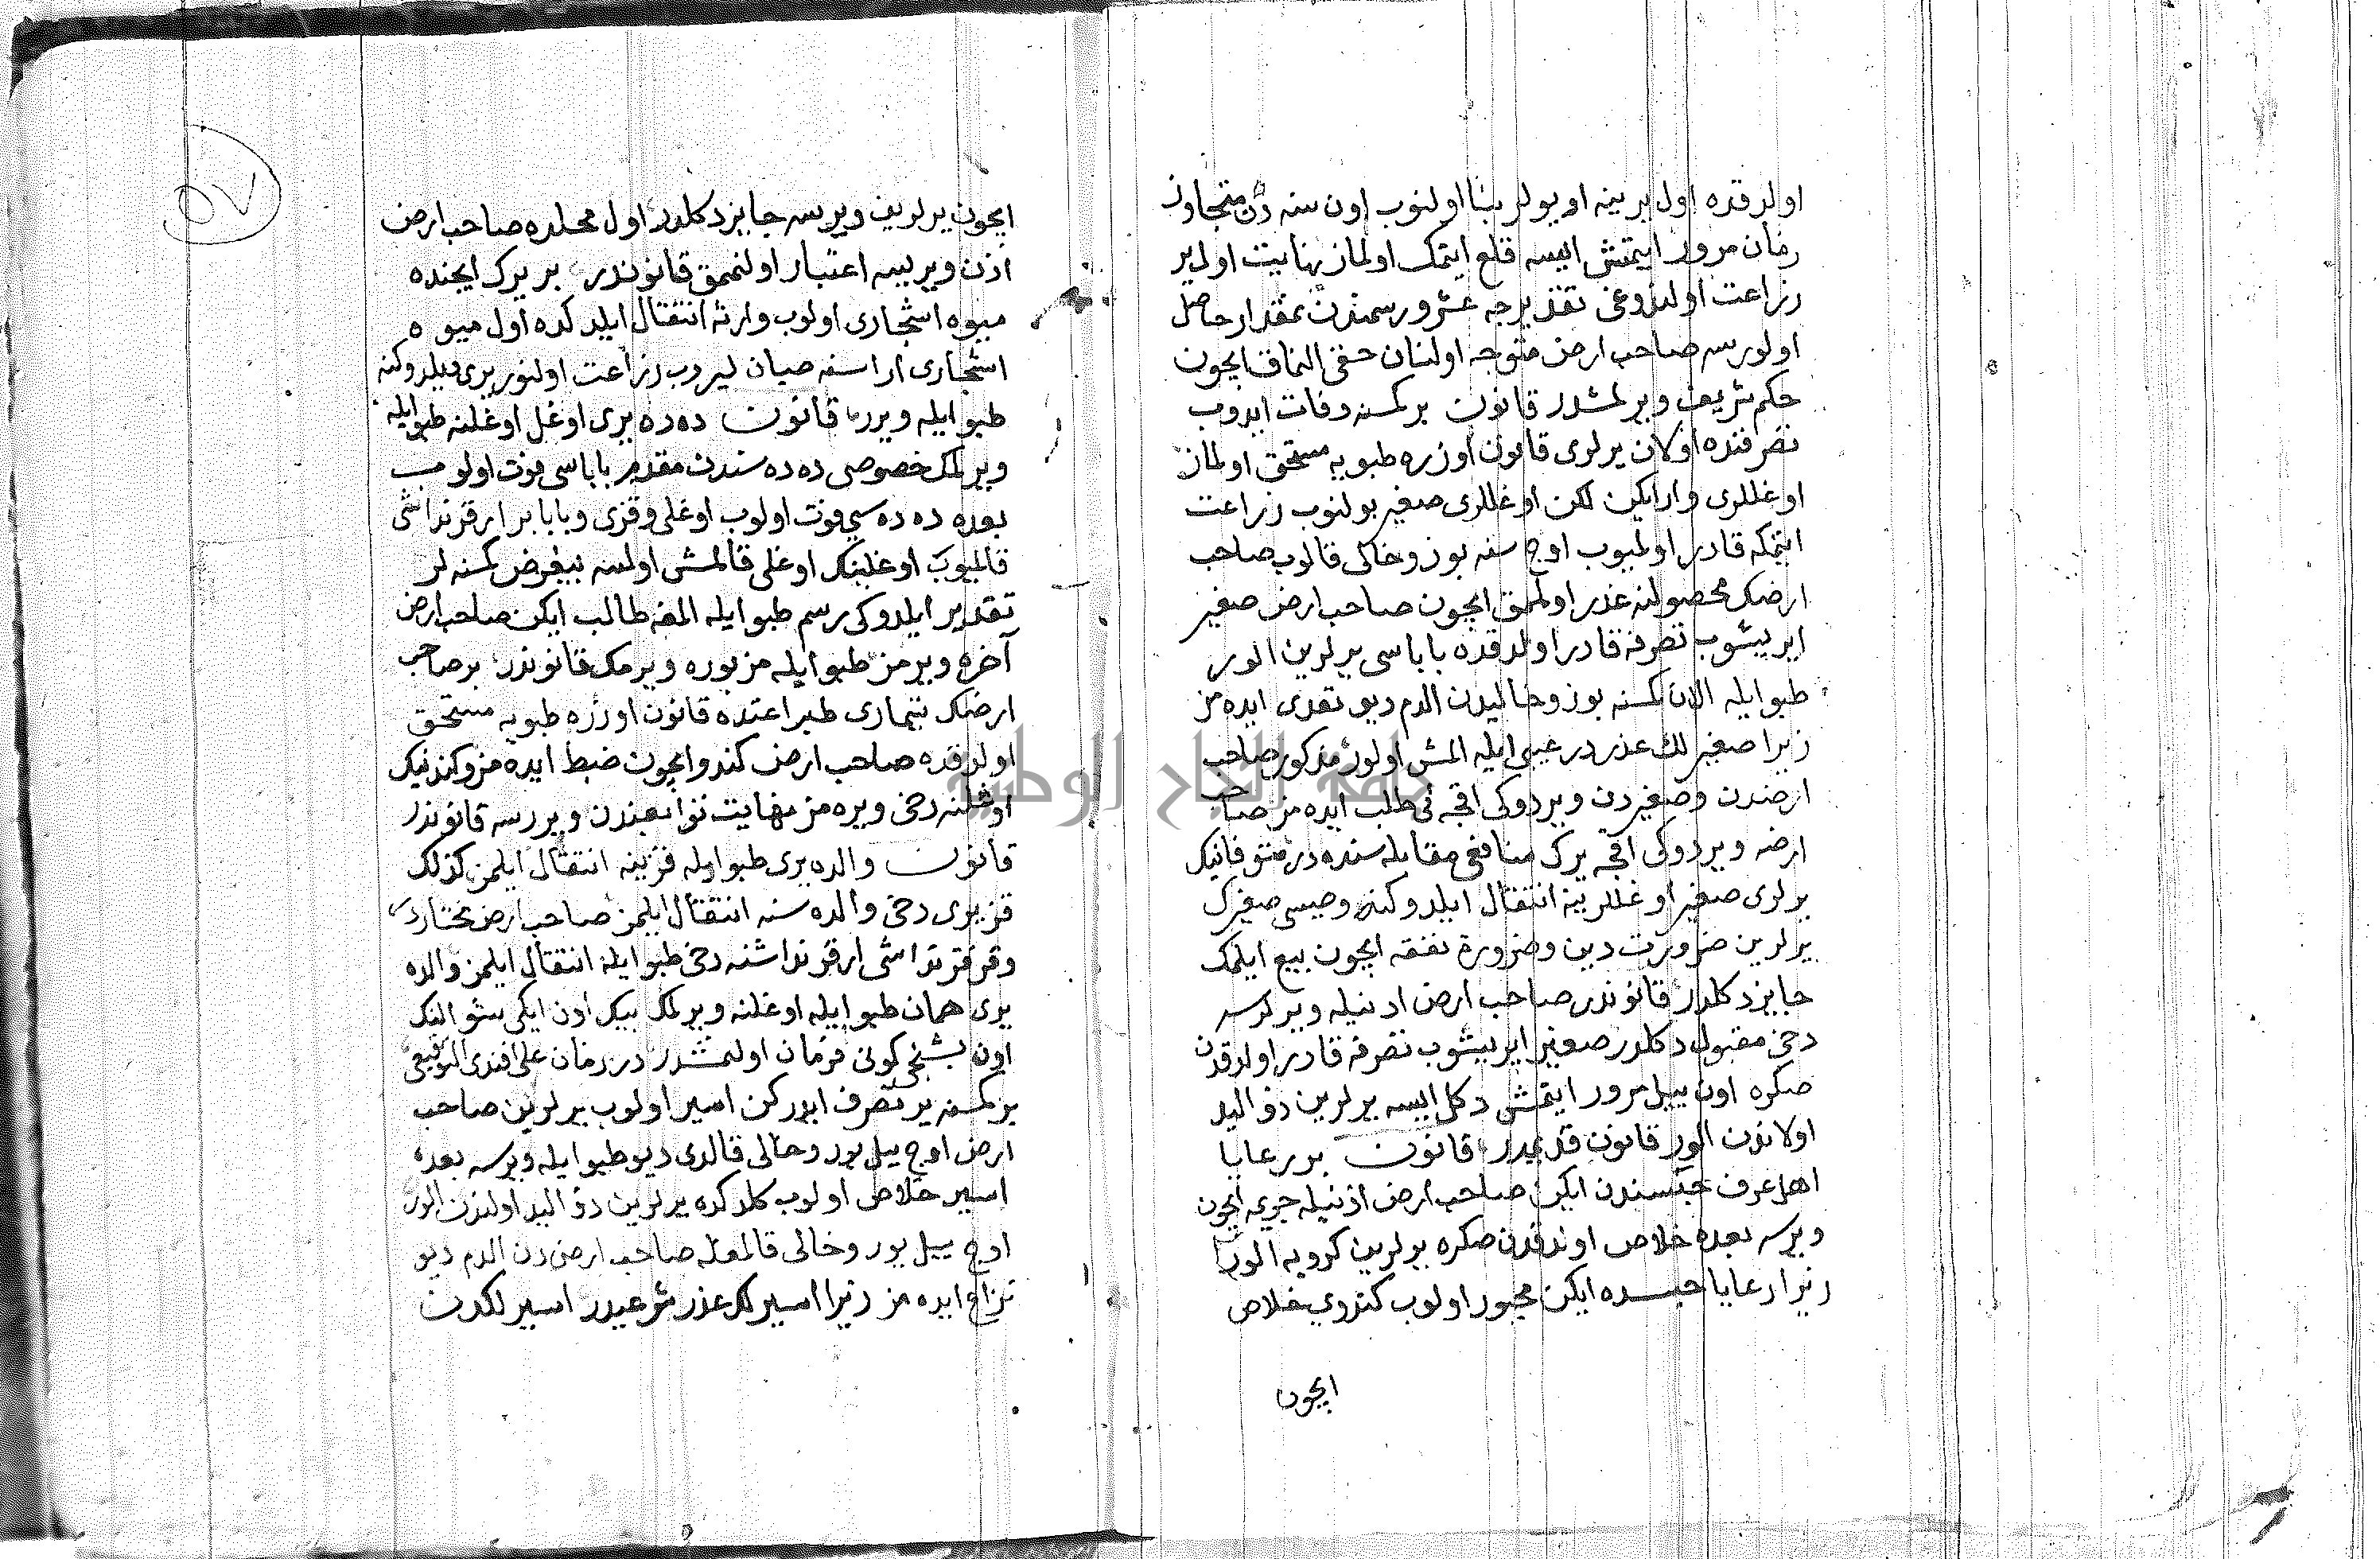 اولدقده اول يرينه او يولر بنا اولنوب اون سنه دن متجاوز
زمان مرور ايتمش ايسه قلع ايتمك اولماز نهايت اول ير
زراعت اولندوغی تقديرجه عشر و رسمندن نمقدار حاصل
اولورسه صاحب ارض متوجه اولنان حقن النماق ايچون
حكم شريف ويرلمشدر قانون بر كمسنه وفات ايدوب
تصرفنده اولان يرلری قانون اوزره طپويه مستحق اولماز
اوغللری وار ايكن لكن اوغللری صغير بولنوب زراعت
ايتمكه قادر اولميوب اوچ سنه بوز و خالی قالوب صاحب
ارضك محصولنه غدر اولمق ايچون صاحب ارض صغير
ايريشوب تصرفه قادر اولدقده باباسی يرلرين الور
طپو ايله الان كمسنه بوز و خاليدن الدم ديو تعدی ايده مز
زيرا صغيرلك عذر در عيبی ايله المش اولور مذكور صاحب
ارضدن و صغيردن ويردوكی اقچه ئی طلب ايده مز صاحب
ارضه ويردوكی اقچه يرك منافعی مقابله سنده در متوفانيك
يرلری صغير اوغللرينه انتقال ايلدوكنده وصيسی صغيرك
يرلرين ضرورت دين و ضرورة نفقه ايچون بيع ايلمك
جايز دكلدر قانوندر صاحب ارض اذنيله ويرلرسه
دخی مقبول دكلدر صغير ايريشوب تصرفه قادر اولدقدن
صكره اون ييل مرور ايتمش دكل ايسه يرلرين ذو اليد
اولاندن الور قانون قديمدر قانون بر رعايا
اهل عرف حبسندن ايكن صاحب ارض اذنيله جريمه ايچون
ويرسه بعده خلاص اوندقدن صكره يولرين كرويه الور
زيرا رعايا حبسده ايكن مجبور اولوب كندوی خلاص
ايچون
٥٧
ايچون يرلرين ويرسه جايز دكلدر اول محلده صاحب ارض
اذن ويريسه اعتبار اولنممق قانوندر بر يرك ايچنده
ميوه اشجاری اولوب وارثه انتقال ايلدكده اول ميوه
اشجاری اراسنه صبان ليروب زراعت اولنور يری ويلدوكنه
طپو ايله ويرر قانون ده ده يری اوغل اوغلنه طپو ايله
ويرلمك خصوصی ده ده سندن مقدم باباسی فوت اولوب
بعده ده ده سی فوت اولوب اوغلی و قزی و بابا بر ارقرنداشی
قالميوب اوغلينك اوغلی قالمش اولسه بيغرض كمسنه لر
تقدير ايلدوكی رسم طپو ايله المغه طالب ايكن صاحب ارض
آخره ويرمز طپو ايله مزبوره ويرمك قانوندر بر صاحب
ارضك تيماری طپراغنده قانون اوزره طپويه مستحق
اولدقده صاحب ارض كندو ايچون ضبط ايده مز و كندنيك
اوغلنه دخی ويره مز نهايت توابعندن ويررسه قانوندر
قانون والده يری طپو ايله قزينه انتقال ايلمز كذلك
قز يری دخی والده سنه انتقال ايلمز صاحب ارض مختاردر
و قز قرنداشی ارقرنداشنه دخی طپو ايله انتقال ايلمز والده
يری همان طپو ايله اوغلنه ويرلمك بيك اون ايكی شوالنك
اون بشنجی كونی فرمان اولنمشدر در زمان علی افندی التوقيعی
بر كمسنه ير تصرف ايدركن اسير اولوب يرلرين صاحب
ارض اوچ ييل بور و خالی قالدی ديو طپو ايله ويرسه بعده
اسير خلاص اولوب كلدكده يرلرين ذو اليد اولندن الور
اوچ ييل بور و خالی قالمغله صاحب ارض دن الدم ديو
نزاع ايده مز زيرا اسيرلك عذر شرعيدر اسيرلكدن